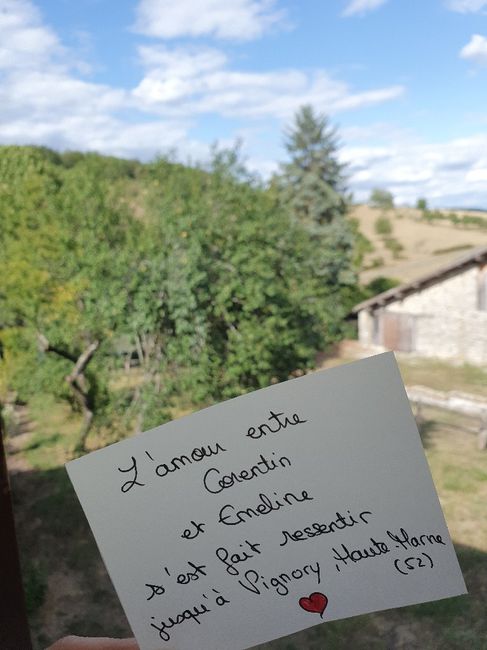 L'amour entre
Corentin
et Emeline
s'est fait ressentir
jusqu'à Vignory, Haute-Marne
(52)